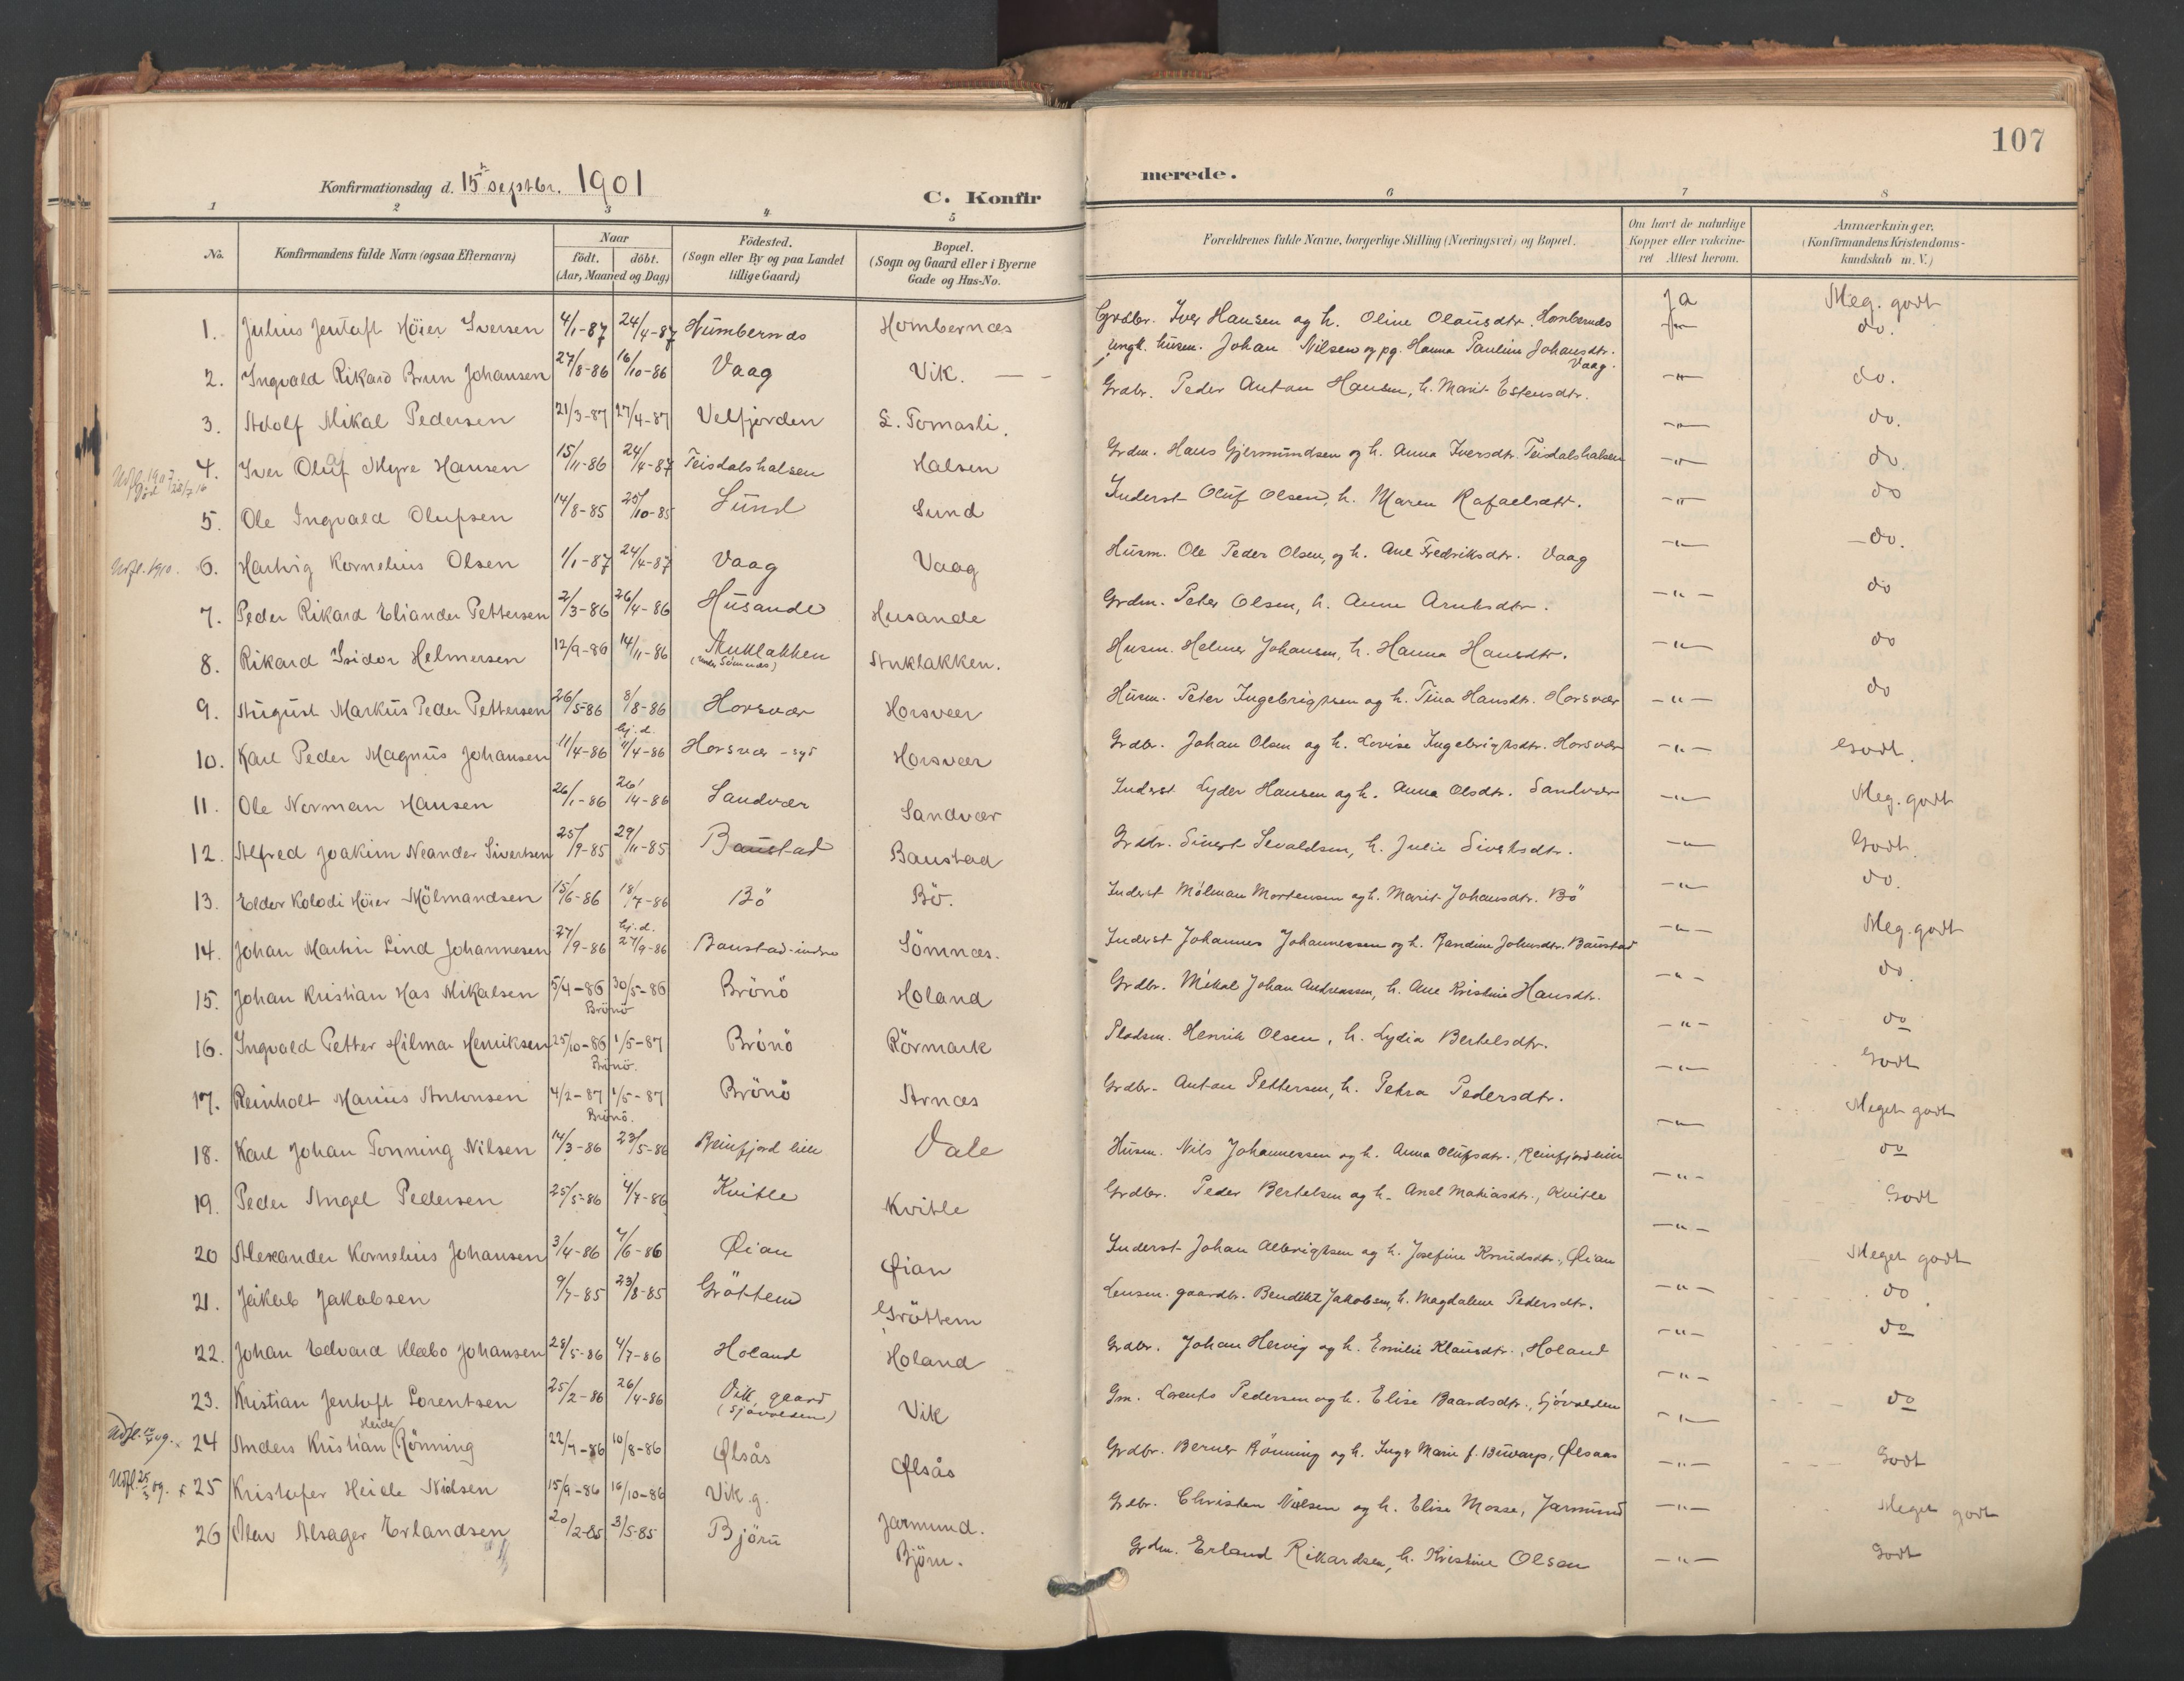 107
Konfirmationsdag d. 15 septbr. 1901
C. Konfir merede.
1 2 3 4 5 6 7 8
No. Konfirmandens fulde Navn (ogsaa Efternavn) Naar født. døbt. (Aar, Maaned og Dag) Födested. (Sogn eller By og paa Landet tillige Gaard) Bopæl. (Sogn og Gaard eller i Byerne Gade og Hus-No. Forældrenes fulde Navne, borgerlige Stilling (Næringsvei) og Bopæl. Om havt de naturlige Kopper eller vakcineret Attest herom. Anmærkninger. (Konfirmandens Kristendomskundskab m. V.)
1. Julius Jentoft Höier Iversen 4/1-87 24/4-87 Humbernes Hombernæs Grdbr. Iver Hansen og h. Oline Olausdtr. Ja Meg. godt
2. Ingvald Rikard Brun Johansen 27/8-86 16/10-86 Vaag Vik. Ungk. husm. Johan Nilsen og pg. Hanna Pauline Johansdtr. Vaag. do.
3. Adolf Mikal Pedersen 21/3-87 27/4-87 Velfjorden L. Tomasli. Grdbr. Peder Antan Hansen, h. Marit Estensdtr. —"— do.
4. Iver Oluf Myre Hansen 15/11-86 24/4-87 Teisdalshalsen Halsen Grdm. Hans Gjermundsen og h. Anna Iversdtr. Teisdalshalsen —"— do.
Udfl. 1907
5. Ole Ingvald Olufsen 14/8-85 25/10-85 Sund Sund Inderst Oluf Olsen, h. Maren Rafaelsdtr. —"— do.
Udfl. 1910. 6. Hartvig Kornelius Olsen 1/1-87 24/4-87 Vaag Vaag Husm. Ole Peder Olsen, og h. Ane Fredriksdtr. Vaag —"— do.
7. Peder Rikard Eliander Pettersen 2/3-86 26/4-86 Husande Husande Grdm. Peter Olsen, h. Anne Arntsdtr. —"— do
8. Rikard Isidor Helmersen 12/9-86 14/11-86 Auklakken (under Sömnæs) Auklakken. Husm. Helmer Johansen, h. Hanna Hansdtr. —"— do
9. August Markus Peder Pettersen 26/5-86 8/8-86 Horsvær Horsvær Husm. Peter Ingebrigtsen og h. Tina Hansdtr. Horsvær —"— do
10. Karl Peder Magnus Johansen 11/4-86 hj. d. 11/4-86 Horsvær-syd Horsvær Grdbr. Johan Olsen og h. Lovise Ingebrigtsdtr. Horsvær —"— Godt.
11. Ole Norman Hansen 26/1-86 26/4-86 Sandvær Sandvær Inderst Lyder Hansen og h. Anna Olsdtr. Sandvær —"— Meg. godt
12. Alfred Joakim Neander Sivertsen 25/9-85 29/11-85 Baustad Baustad Grdbr. Sivert Sevaldsen, h. Julie Sivertsdtr. —"— Godt.
13. Elder Kolodi Höier Mölmandsen 15/6-86 18/7-86 Bö Bö. Inderst Mölman Mortensen og h. Marit Johansdtr. Bö —"— do.
14. Johan Martin Lind Johannesen 27/9-86 hj. d. 27/9-86 Baustad-indre Sömnæs. Inderst Johannes Johannessen og h. Randine Johnsdtr. Baustad —"— Meg. godt
15. Johan Kristian Has Mikalsen 5/4-86 30/5-86 Brönö Brönö Holand Grdbr. Mikal Johan Andreassen, h. Ane Kristine Hansdtr. —"— do.
16. Ingvald Petter Hilmar Henriksen 25/10-86 1/5-87 Brönö. Brönö Rörmark Pladsm. Henrik Olsen, h. Lydia Bertelsdtr. —"— do
17. Reinholt Marius Antonsen 4/2-87 1/5-87 Brönö. Brönö Arnæs Grdbr. Anton Pettersen, h. Petra Pedersdtr. —"— Godt
18. Karl Johan Tonning Nilsen 14/3-86 23/5-86 Reinfjord Vale Husm. Nils Johannessen og h. Anna Olufsdtr., —"— Meget godt
19. Peder Angel Pedersen 25/5-86 4/7-86 Kvitle Kvitle Grdbr. Peder Bertelsen og h. Anel Matiasdtr., Kvitle —"— do
20 Alexander Kornelius Johansen 3/4-86 7/6-86 Øian Øian Inderst Johan Albrigtsen og h. Josefine Knudsdtr., Øian —"— Godt
21. Jakob Jakobsen 9/7-85 23/8-85 Gröttem Gröttem Lensm. gaardbr. Bendikt Jakobsen, h. Magdalene Pedersdtr. —"— Meget godt
22. Johan Edvard Klæbo Johansen 28/5-86 4/7-86 Holand Holand Grdbr. Johan Hervig og h. Emilie Klausdtr., Holand —"— do
23. Kristian Jentoft Lorentsen 25/2-86 26/4-86 Vik gaard (Sjövolden) Vik Gm. Lorents Pedersen og h. Elise Baardsdtr., Sjövolden —"— do
24 Anders Kristian Heide Rönning 22/7-86 10/8-86 Ølsås Ølsås Grdbr. Berner Rönning og h. Inger Marie f. Buvarp, Ølsaas —"— do
Udfl. 25/3 09. x 25 Kristofer Heide Nielsen 15/9-86 16/10-86 Vik. g. Jarmund. Grdbr. Christen Nielsen og h. Elise Mosse, Jarmund —"— Godt
Meget godt
26 Olav Alsager Erlandsen 20/2-85 3/5-85 Björn Björn. Grdm. Erland Rikardsen, h. Kristine Olsen —"— Godt